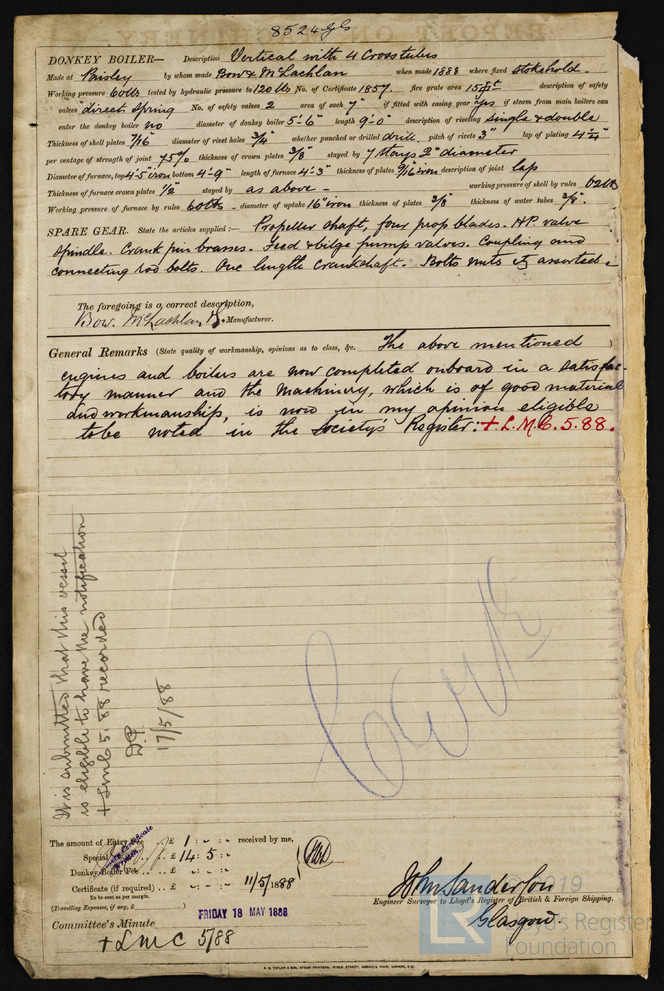 8524 Gls
DONKEY BOILER— Description Vertical with 4 Crosstubes
Made at Paisley by whom made Bow & McLachlan when made 1888 where fixed Stokehold.
Working pressure 60 lbs tested by hydraulic pressure to 120 lbs No. of Certificate 1857. fire grate area 15 description of safety
valves direct Spring No. of safety valves 2 area of each 7" if fitted with easing gear yes if steam from main boilers can
enter the donkey boiler no diameter of donkey boiler 5'-6" length 9'-0" description of riveting single & double
Thickness of shell plates 7/16 diameter of rivet holes 3/4" whether punched or drilled drill. pitch of rivets 3" lap of plating
per centage of strength of joint 75% thickness of crown plates 3/8 stayed by 7 stays 2" diameter
Diameter of furnace, top 4'-5" iron bottom 4'-9" length of furnace 4'-3" thickness of plates 9/16 iron description of joint lap
Thickness of furnace crown plates 1/2 stayed by as above - working pressure of shell by rules 62 lbs
Working pressure of furnace by rules 60 lbs - diameter of uptake 16" iron thickness of plates 3/8 thickness of water tubes 3/8".
SPARE GEAR. State the articles supplied:— Propeller shaft, four prop blades. HP. valve
Spindle. Crank pin brasses. Feed & bilge pump valves. Coupling and
connecting rod bolts. One length Crankshaft. Bolts nuts assorted
The foregoing is a correct description,
Bow. McLachlan Manufacturer.
General Remarks (State quality of workmanship, opinions as to class, &c. The above mentioned )
engines and boilers are now completed onboard in a satisfac-
tory manner and the Machinery, which is of good material
and workmanship, is now in my opinion eligible
to be noted in the Society's Register: + L.M.C. 5.88.
It is submitted that this vessel
is eligible to have the notification
+ LMC 5.88 recorded
17/5/88
The amount of Entry Fee .. £ 1 : - : - received by me,
Special .. £ 14 : 5 :
Donkey Boiler Fee .. £ : :
Certificate (if required) .. £ : : 11/5/1888
To be sent as per margin.
(Travelling Expenses, if any, £ )
John Sanderson
Engineer Surveyor to Lloyd's Register of British & Foreign Shipping.
Glasgow.
Committee's Minute FRIDAY 18 MAY 1888
+ LMC 5/88
© 2019
Lloyd's Register
Foundation